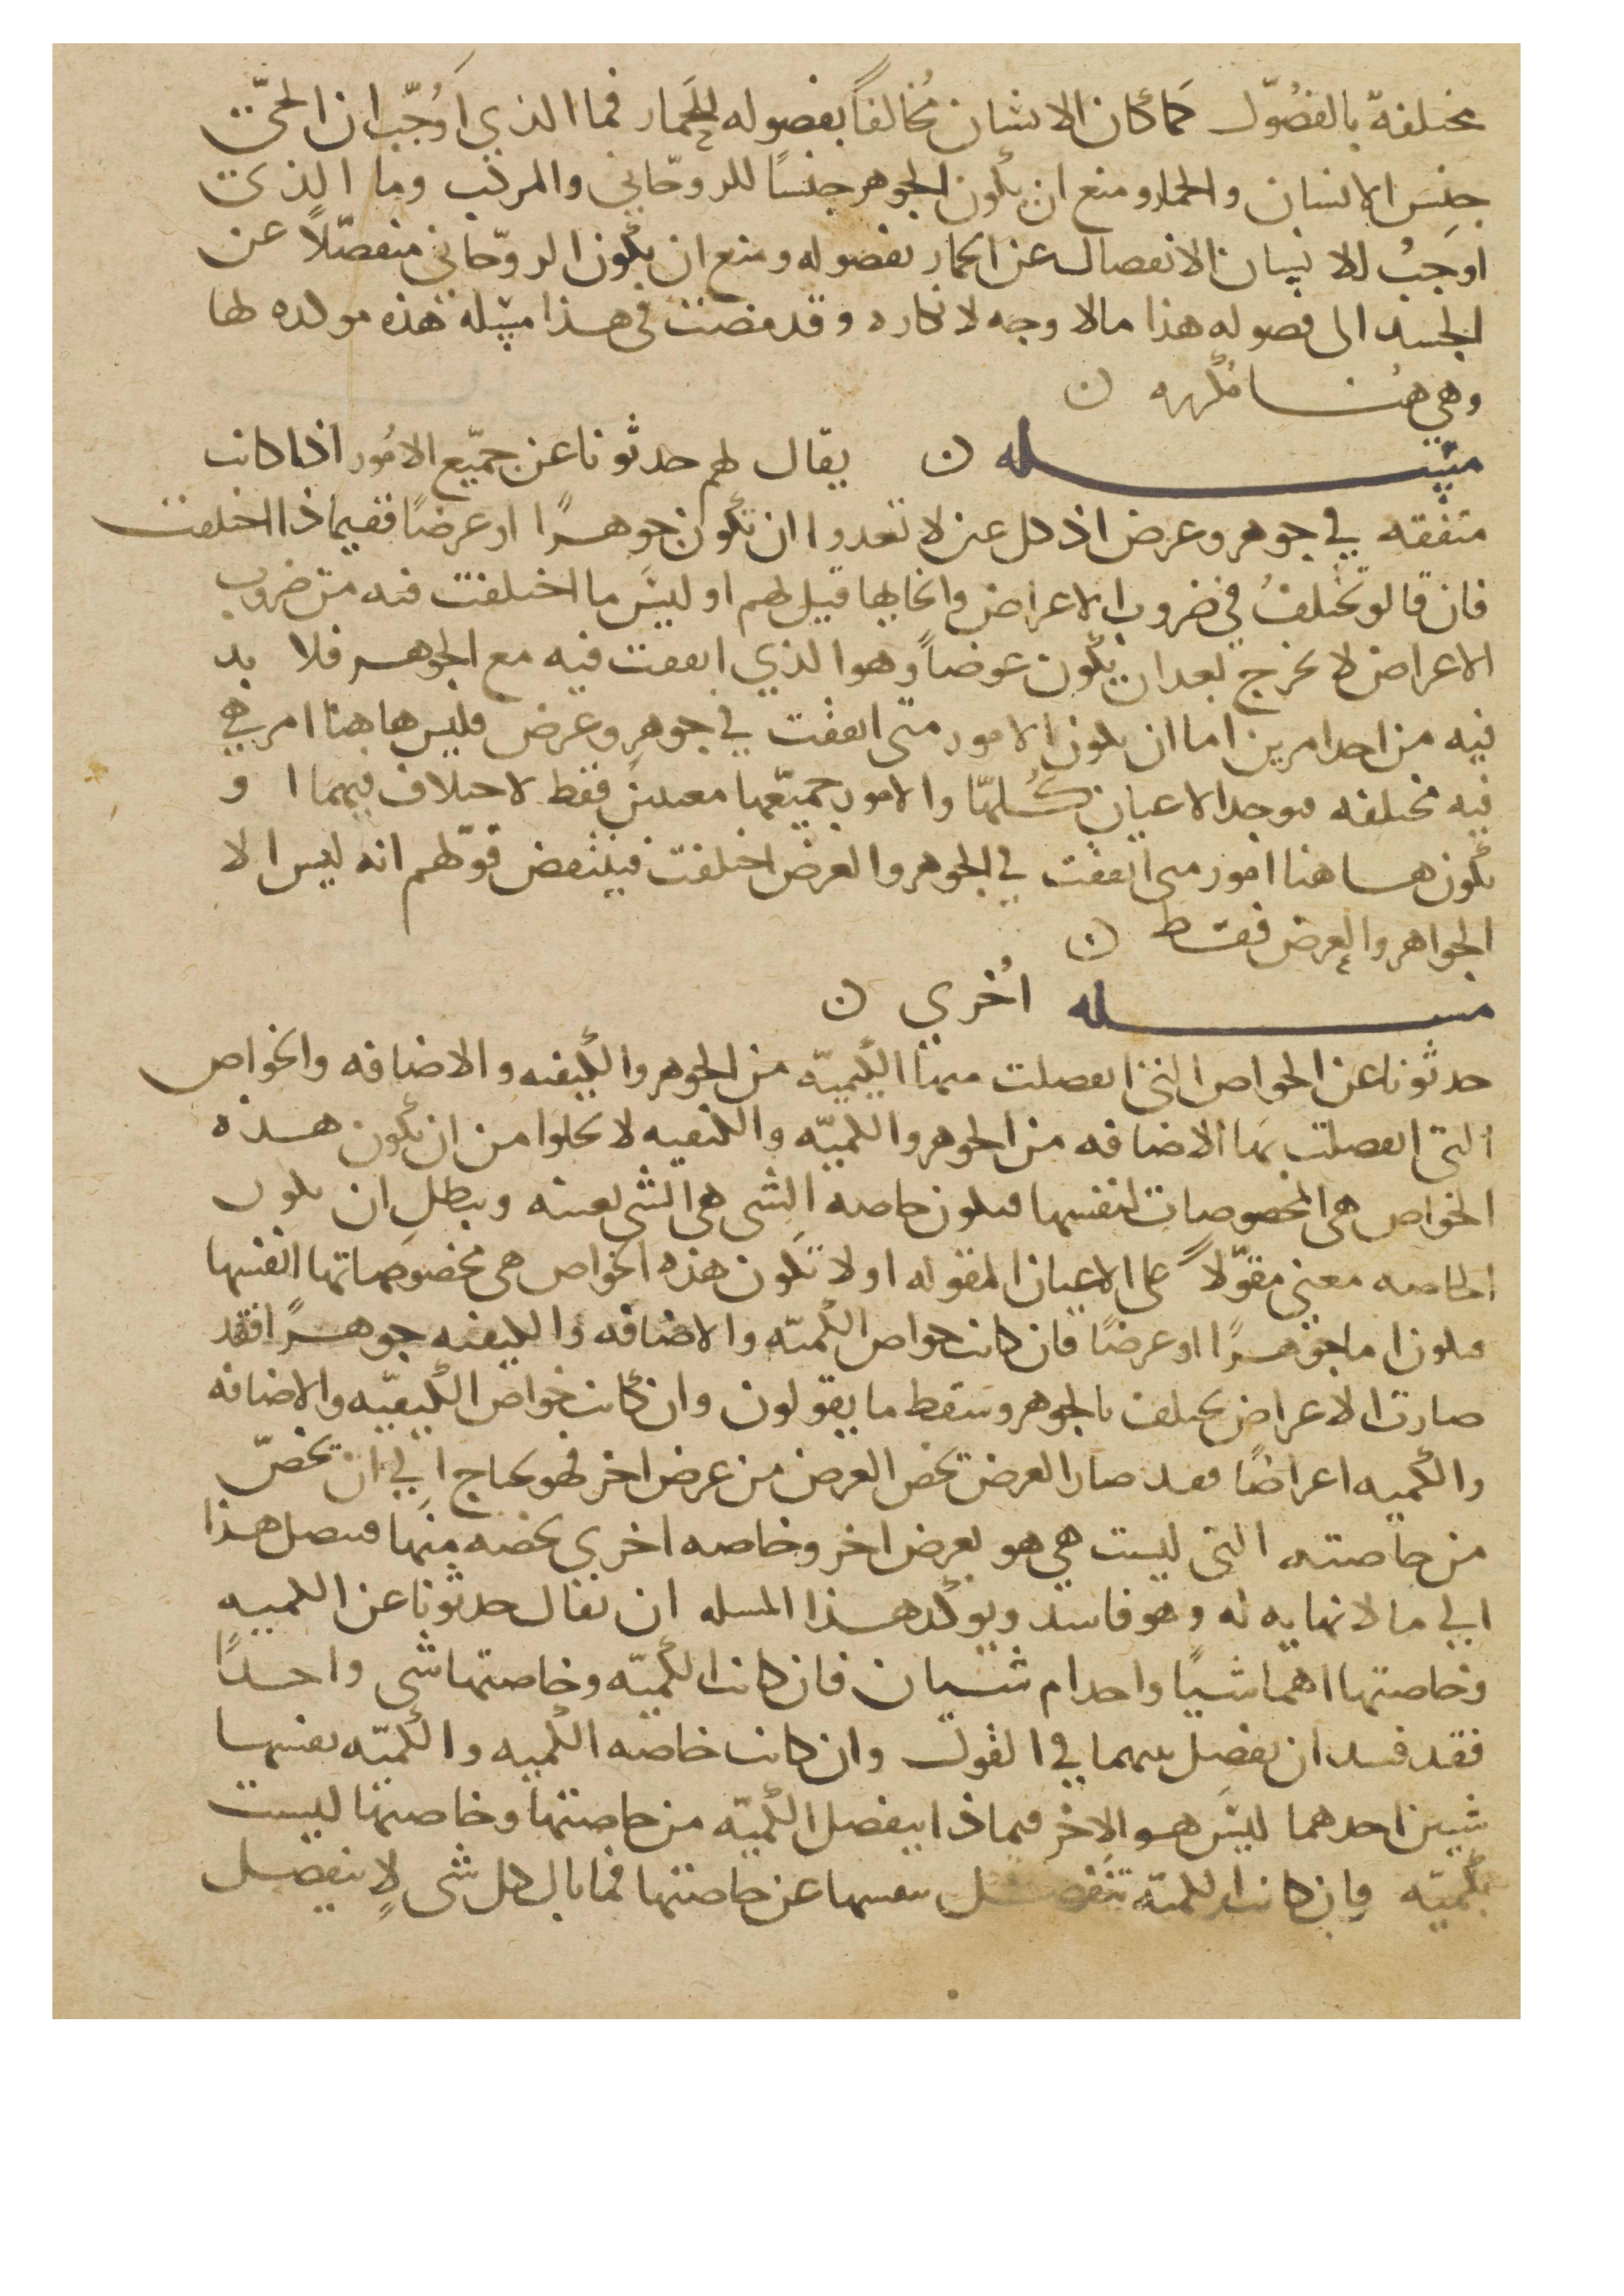 مختلفة بالفصُوّل كمَا كان الانسان مُخالفاً بفصوله للحَمار فما الذي اَوُجّب ان الحيّ
جِنسَ الانسان والحمار ومنع ان يكون الجوهر جنسًا للروحّاني والمركب وما الذي
اوجبُ للانسان الانفصال عن الحمار بفصوله ومنع ان يكون الروحّاني منفصّلاً عن
الجسد الى فصوله هذا مالا وجه لانكاره وقد مضت في هذا مسله هذه مولده لها
وهي هنا
مسله ن يقال لهم حدثونا عن جمّيع الامُور اذا كانت
متفقه في جوهر وعرض اذ كل عين لا تعدوا ان تكون جوهرًا او عرضًا ففيماذا اختلفت
فان قالو تختلفُ في ضروب الاعراض وانحايها قيل لهم او ليسَ ما اختلفت فيه من ضروب
الاعراض لا يخرج بعد ان يكون عرضاً وهو الذي اتفقت فيه مع الجوهر فلا بد
فيه من احد امرين اما ان يكون الامور متى اتفقت في جوهرٍ وعرض فليس هاهنا امر هي
فيه مختلفه فيوجد الاعيان كُلهّا والامور جميّعها معنيين فقط لا اختلاف فيهما او
يكون هاهنا امور متى اتفقت في الجوهر والعرض اختلفت فينتقض قوّلهم انه ليس الا
الجواهر والعرض فقط ن
مسله اُخري ن
حدثونا عن الخواص التي انفصلت منها الكميّه من الجوهر والكيفيه والاضافه والخواص
التي انفصلت بها الاضافه من الجوهر والكميّه والكيفيه لا يخلوا من ان تكون هذه
الخواص هي المخصوصات لنفسها فيكون خاصه الشي هي الشي بعينه ويبطل ان يكون
الخاصه معني مقوّلاً على الاعيان المقوله او لا تكون هذه الخواص هي مخصوصاتها انفسها
فيكون اما جوهرًا او عرضًا فان كانت خواص الكميّه والاضافه والكيفيه جوهرًا فقد
صارت الاعراض يختلف بالجوهر وسقط ما يقولون وان كانت خواص الكيفيّه والاضافه
والكميه اعراضًا فقد صار العرض يخص العرض من عرض اخر فهو يحتاج الي ان يخصّ
من خاصته التي ليست هي هو بعرض اخر وخاصه اخري يخصه منها فيتصل هذا
الي ما لا نهايه له وهو فاسد ويوكد هذا المسله ان يقال حدثونا عن الكميه
وخاصتها اهما شيًا واحد ام شيان فان كانت الكميّه وخاصتها شي واحدًا
فقد فسد ان يفصل بينهما في القول وان كانت خاصه الكميه والكميّه نفسها
شيين احدهما ليسَ هو الاخر فبماذا ينفصل الكميّه من خاصتها وخاصتها ليست
بكميّه فان كانت الكميّه تنفصل بنفسها عن خاصتها فما بال كل شي لا ينفصل